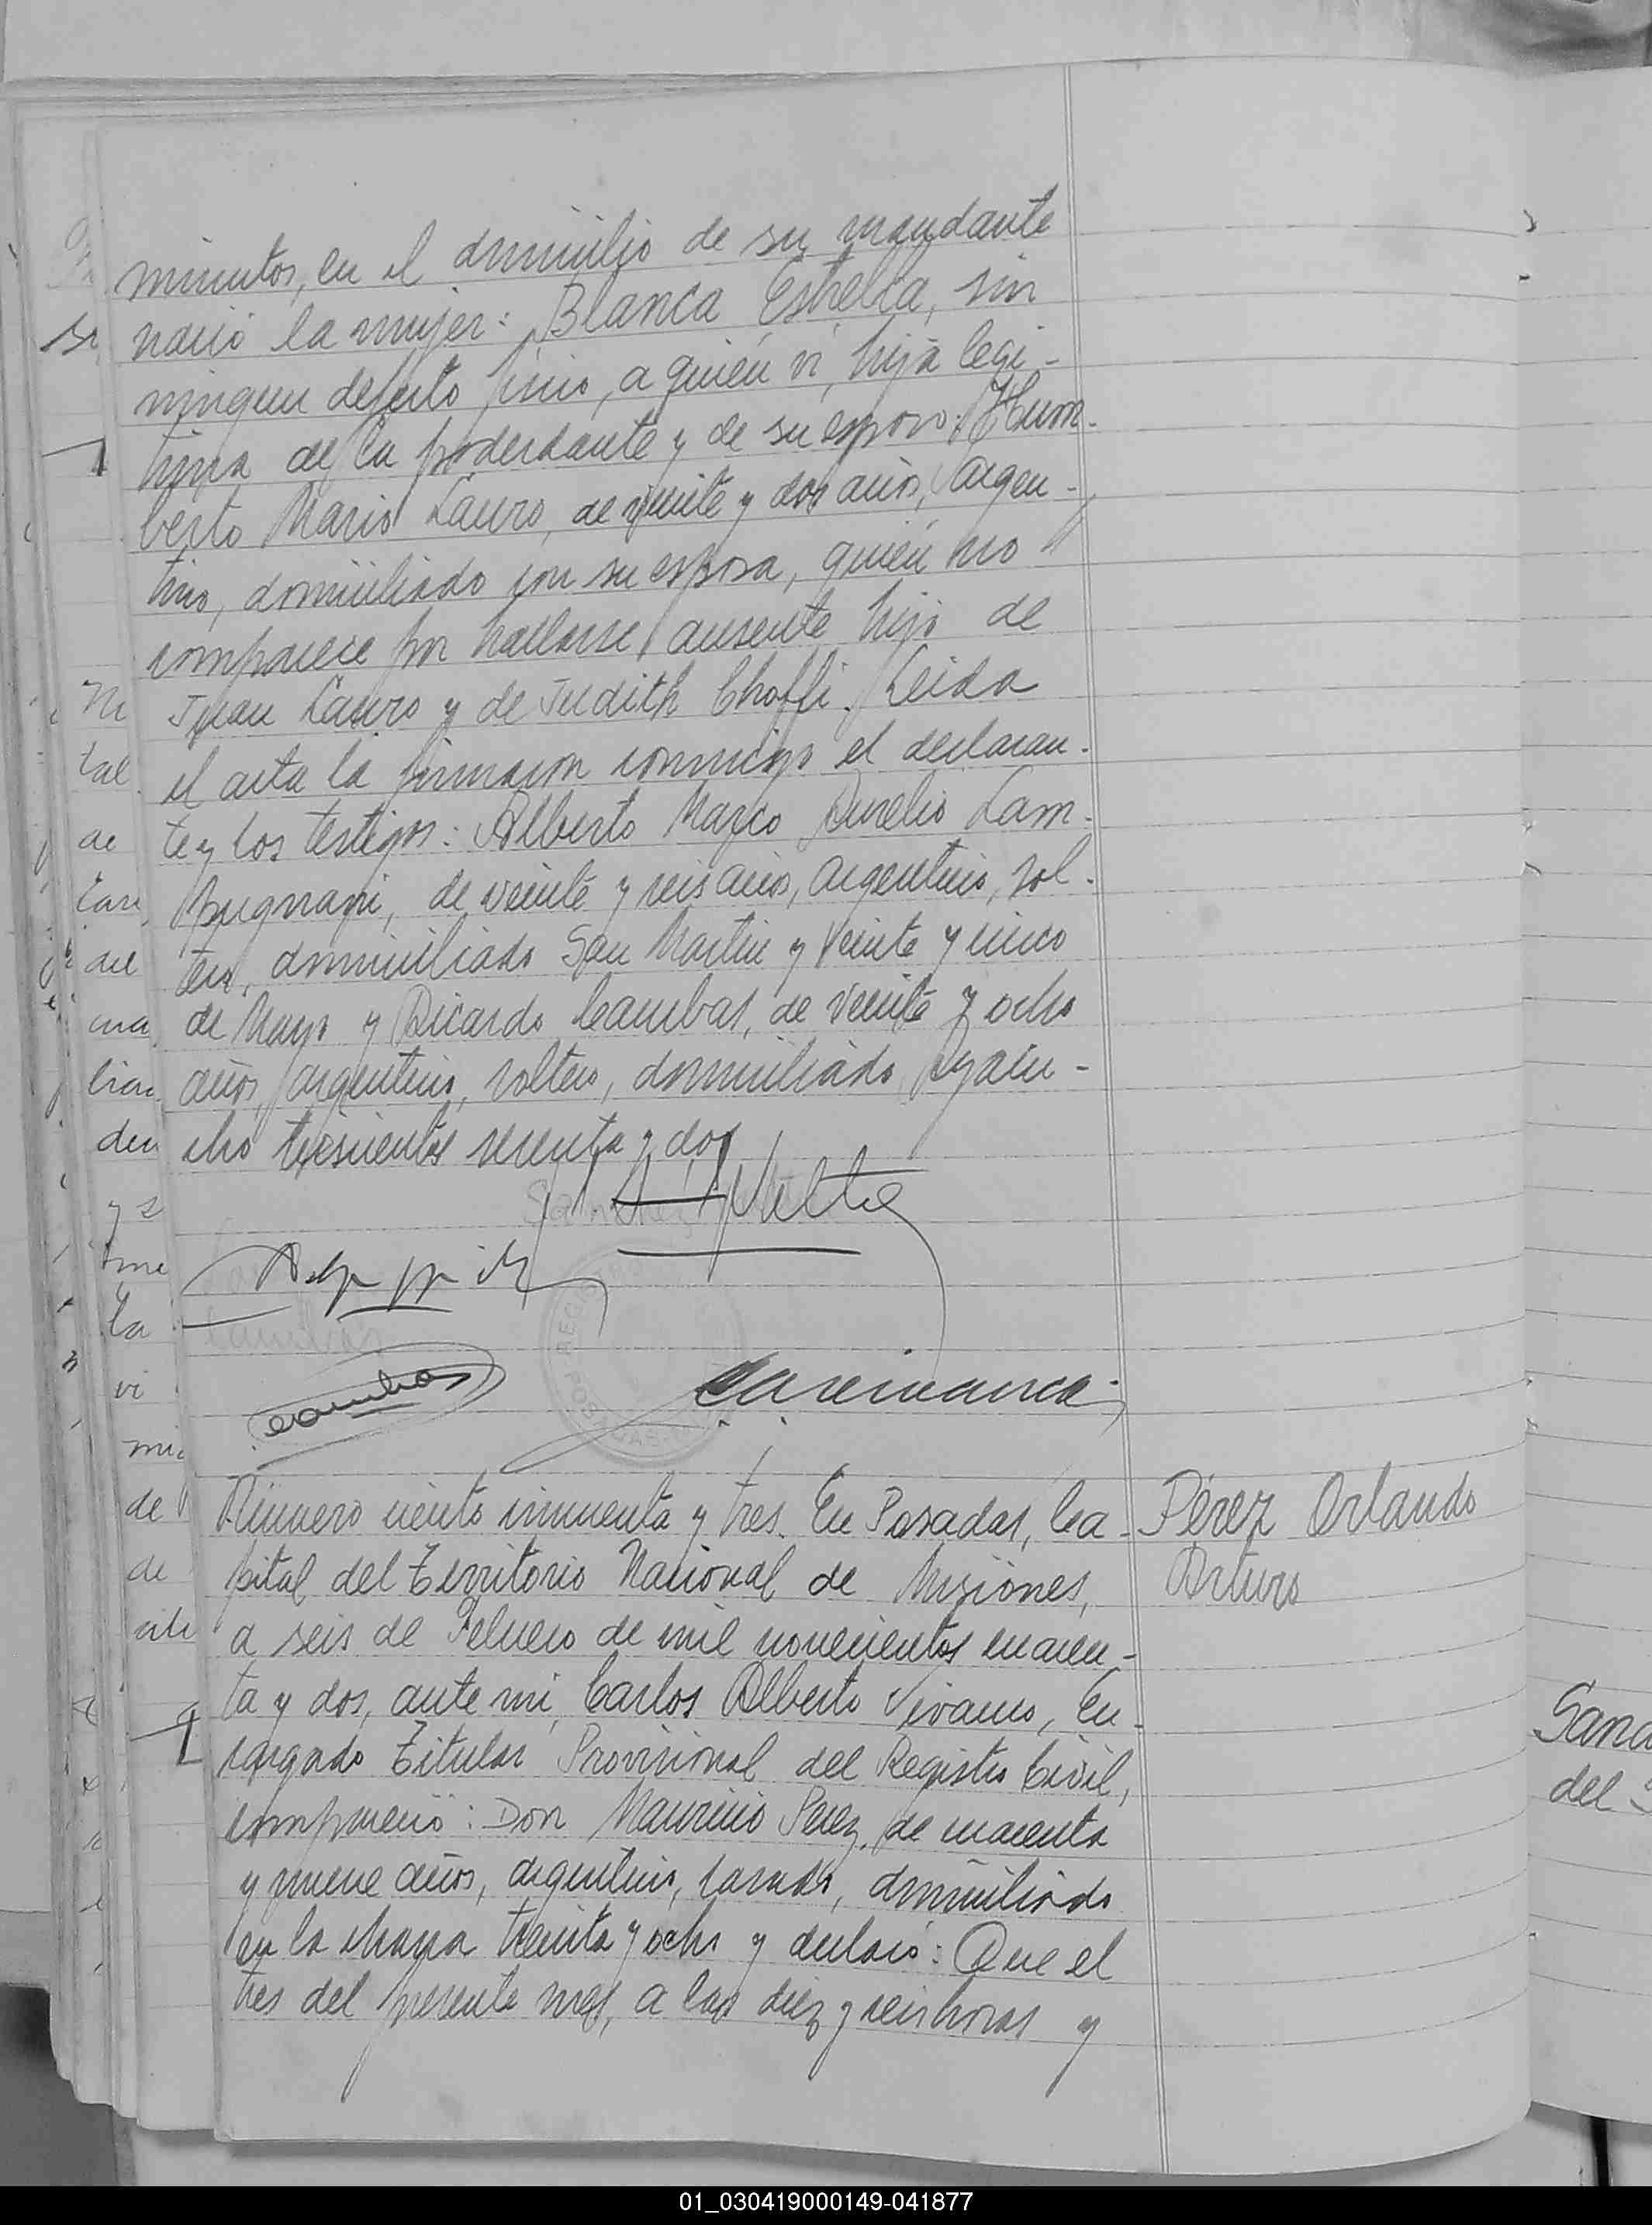 minutos, en el domicilio de su mandante
nació la mujer: Blanca Estrella, sin
ningun defecto fisico, a quién vi, hija legi-
tima de la poderdante y de su esposo: Hum-
berto Mario Lauro, de veinte y dos años, argen-
tino, domiciliado con su esposa, quién no
comparece por hallarse ausente hijo de
Juan Lauro y de Judith Choffi. Leida
el acta la firmaron conmigo el declaran-
te y los testigos: Alberto Marco Aurelio Lam-
pugnani, de veinte y seis años, argentino, sol-
tero, domiciliado San Martin y Veinte y cinco
de Mayo y Ricardo Cambas, de veinte y ocho
años, argentino, soltero, domiciliado Ayacu-
cho trescientos sesenta y dos
Cambas
Número ciento cincuenta y tres. En Posadas, Ca-
pital del Territorio Nacional de Misiones,
a seis de Febrero de mil novecientos cuaren-
ta y dos, ante mi, Carlos Alberto Vivanco, En-
cargado Titular Provisional del Registro Civil,
compareció: Don Mauricio Perez, de cuarenta
y nueve años, argentino, casado, domiciliado
en la chacra treinta y ocho y declaró: Que el
tres del presente mes, a las diez y seis horas y
Pérez Orlando
Arturo
01_030419000149-041877